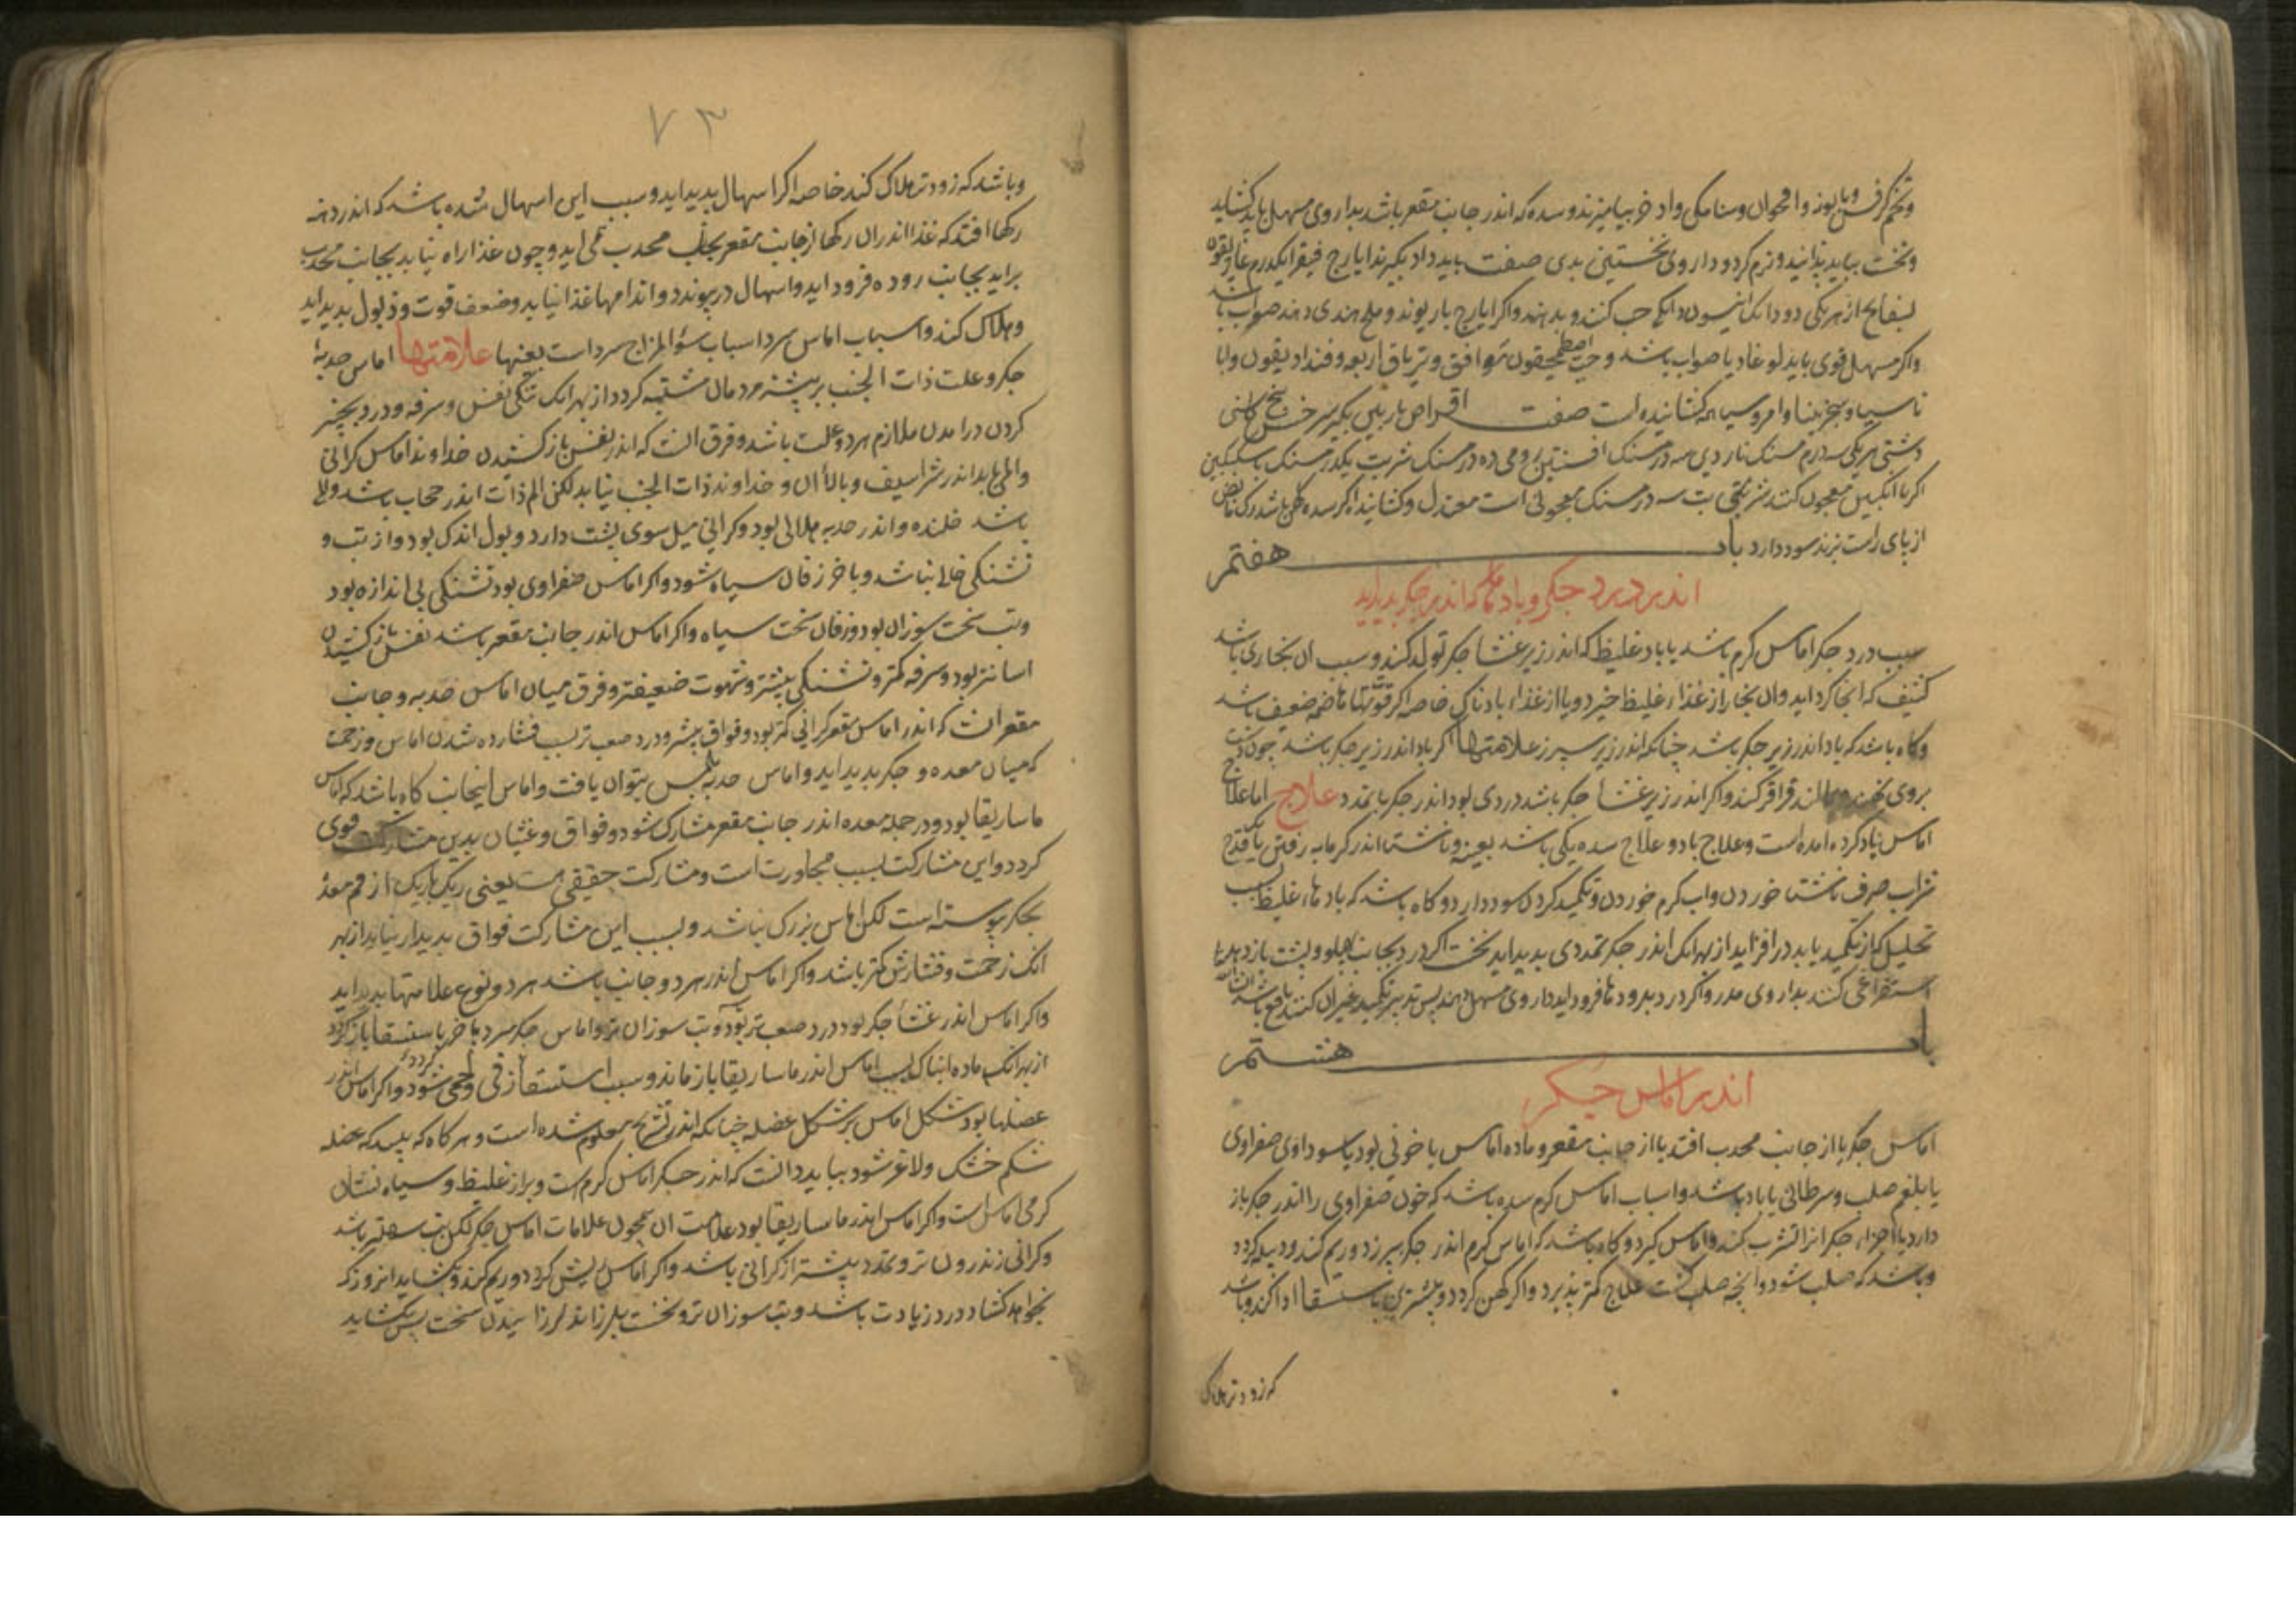 وتخم کرفس وبابونه واقحوان وسنا مکی واذخر بیامیزند وسده که اندر جانب مقعر باشد بداروی مسهل باید کشاید
ونخست بباید پزانید ونرم کرد وداروی نخستین بدی صفت باید داد بکیرند ایارج فیقرا یکدرم غاریقون
بسفایج از هر یکی دو دانک انیسون دانکی حب کنند وبدهند واکر ایارج باریوند وملح هندی دهند صواب باشد
واکر مسهل قوی باید لوغاذیا صواب باشد وحب اصطمحیقون موافق وتریاق اربعه وفنداد یقون واما
ناسیا وسجزینا وامروسیا همه کشاینده است صفت اقراص باریس بکیرند سرخس بیخ کاسنی
دشتی هر یکی سه درم سنک ناردین سه درمسنک افسنتین رومی ده درمسنک شربت یکدرمسنک با سکنکبین
اکر با انکبین معجون کنند شربتی سه درمسنک معجونی است معتدل وکشاینده اکر سده کهن باشد رک باض
از پای راست بزنند سود دارد باب هفتم
اندر درد جکر وبادها که اندر جکر پدید اید
سبب درد جکر اماس کرم باشد یا باد غلیظ که اندر زیر غشا جکر تولد کند وسبب ان بخاری باشد
کثیف که انجا کرد اید وان بخار از غذاء غلیظ خیزد ویا از غذاء بادناک خاصه اکر قوتها هاضمه ضعیف باشد
وکاه باشد که باد اندر زیر جکر باشد چنانکه اندر زیر سپرز علامتها اکر باد اندر زیر جکر باشد چون دست
بروی نهند وبمالند قراقر کند واکر اندر زیر غشا جکر باشد دردی بود اندر جکر با تمدد علاج اما علاج
اماس یاد کرده امده است وعلاج باد وعلاج سده یکی باشد بعینه وناشتا اندر کرمابه رفتن یا قدح
شراب صرف ناشتا خوردن واب کرم خوردن وتکمید کردن سود دارد وکاه باشد که بادهاء غلیظ بسبب
تحلیل که از تکمید یابد درافزاید از بهر انک اندر جکر تمددی پدید اید نخست اکر درد بجانب پهلو وپشت باز دهد
استفراغی کنند بداروی مدر واکر درد برودها فرود اید داروی مسهل دهند پس تدبیر تکمید وغیر ان کنند نافع باشد ان شا الله
باب هشتم
اندر اماس جیکر
اماس جکر یا از جانب محدب افتد یا از جانب مقعر وماده اماس یا خونی بود یا سوداوی صفراوی
یا بلغم صلب وسرطانی یا باد باشد واسباب اماس کرم سده باشد که خون صفراوی را اندر جکر باز
دارد یا اجزاء جکر انرا تشرب کند واماس کیرد وکاه باشد که اماس کرم اندر جکر بپزد وریم کند ودبیله کردد
وباشد که صلب شود وانچه صلب کشت علاج کمتر پذیرد واکر کهن کردد وبیشترین باستسقا ادا کند وباشد
که زودتر هلاک
۷۳
وباشد که زودتر هلاک کند خاصه اکر اسهال پدید اید وسبب این اسهال سده باشد که اندر دهنه
رکها افتد که غذا اندران رکها از جانب مقعر بجانب محدب می اید وچون غذا راه نیابد بجانب محدب
براید بجانب روده فرود اید واسهال درپیوندد واندامها غذا نیابد وضعف قوت وذبول پدید اید
وهلاک کند واسباب اماس سرد اسباب سوء المزاج سرد است بعینها علامتها اماس حدبهٔ
جکر وعلت ذات الجنب بر بیشتر مردمان مشتبه کردد از بهر انک تنکی نفس وسرفه ودرد بچنبر
کردن درامدن ملازم هر دو علت باشد وفرق انست که اندر نفس باز کشیدن خداوند اماس کرانی
والمی یابد اندر شراسیف وبالاء ان وخداوند ذات الجنب نیابد لکن الم ذات اندر حجاب باشد والمی
باشد خلنده واندر حدبه هلالی بود وکرانی میل سوی پشت دارد وبول اندک بود واز تب و
تشنکی خالی نباشد وباخر زفان سیاه شود واکر اماس صفراوی بود تشنکی بی اندازه بود
وتب سخت سوزان بود وزفان سخت سیاه واکر اماس اندر جانب مقعر باشد نفس باز کشیدن
اسانتر بود وسرفه کمتر وتشنکی بیشتر وشهوت ضعیفتر وفرق میان اماس حدبه وجانب
مقعر انست که اندر اماس مقعر کرانی کمتر بود وفواق بیشتر ودرد صعب تر بسبب فشارده شدن اماس وزحمت
که میان معده وجکر پدید اید واماس حدبه بلمس بتوان یافت واماس اینجانب کاه باشد که اماس
ماساریقا بود ودر جمله معده اندر جانب مقعر مشارک شود وفواق وغثیان بدین مشارکت قوی
کردد واین مشارکت بسبب مجاورت است ومشارکت حقیقی هست یعنی رک باریک از فم معدهٔ
بجکر پیوسته است لکن اماس بزرک نباشد وبسبب این مشارکت فواق پدیدار نیاید از بهر
انک زحمت وفشارش کمتر باشد واکر اماس اندر هر دو جانب باشد هر دو نوع علامتها پدید اید
واکر اماس اندر غشاء جکر بود درد صعب تر بود وتب سوزان تر واماس جکر سرد باخر باستسقا باز کردد
از بهر انک ماده انباک بسبب اماس اندر ماساریقا باز ماند وسبب استسقاء زقی ولحمی شود کردد واکر اماس اندر
عضلها بود شکل اماس بر شکل عضله چنانکه اندر تشریح معلوم شده است وهرکاه که بیند که عضله
شکم خشک ولاغر شود بباید دانست که اندر جکر اماس کرم است وبراز غلیظ وسیاه نشان
کرمی اماس است واکر اماس اندر ماساریقا بود علامت ان همچون علامات اماس جکر لکن تب سهلتر باشد
وکرانی اندرون تر وتمدد بیشتر از کرانی باشد واکر اماس ریش کردد وریم کند وبکشاید انروز که
بخواهد کشاد درد زیادت باشد وتب سوزان تر ونخست بلرزاند لرزانیدن سخت پس بکشاید